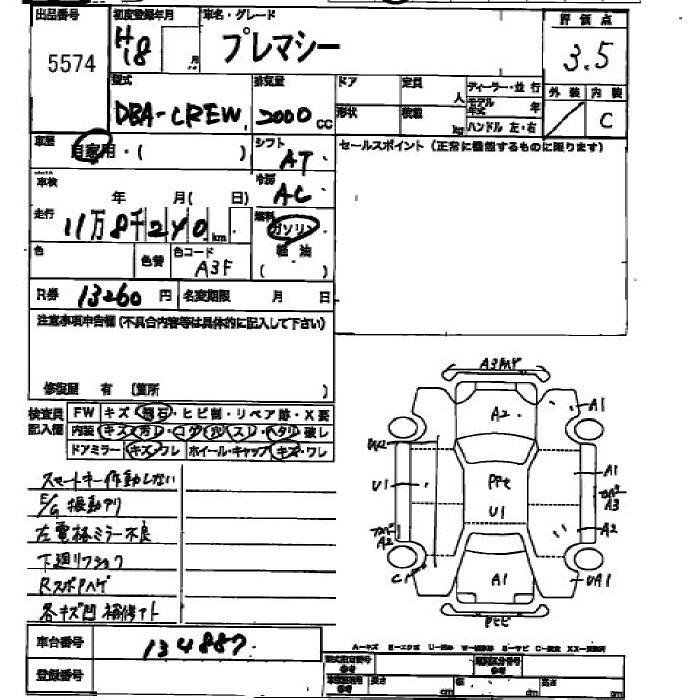 出品番号 初度登録年月 車名・グレード 評価点
5574 H18 月 プレマシー 3.5
型式 排気量 ドア 定員 人 ディーラー・並行 外装 内装
DBA-CREW 2000cc 形状 積載 kg モデル年式 年 C
ハンドル 左・右
車歴 自家用・( ) シフト AT セールスポイント (正常に機能するものに限ります)
車検 年 月( 日) 冷房 AC
走行 11万8千240km 燃料 ガソリン
色 色替 色コード A3F 軽油
( )
R券 13260円 名変期限 月 日
注意事項申告欄(不具合内容等は具体的に記入して下さい)
修復歴 有 (箇所 )
検査員記入欄 FW キズ・飛石・ヒビ割・リペア跡・X要
内装 キズ・汚レ・コゲ・穴・スレ・ヘタリ・破レ
ドアミラー キズ・ワレ ホイール・キャップ キズ・ワレ
スマートキー作動しない
E/G振動アリ
左電格ミラー不良
下廻リフショク
RスポAハゲ
各キズ凹 補修アト
A2
A1
A1
U1
PPt
U1
A3
A2
A2
A1
UA1
Ptに
車台番号 134887
登録番号
長さ cm 幅 cm 高さ cm